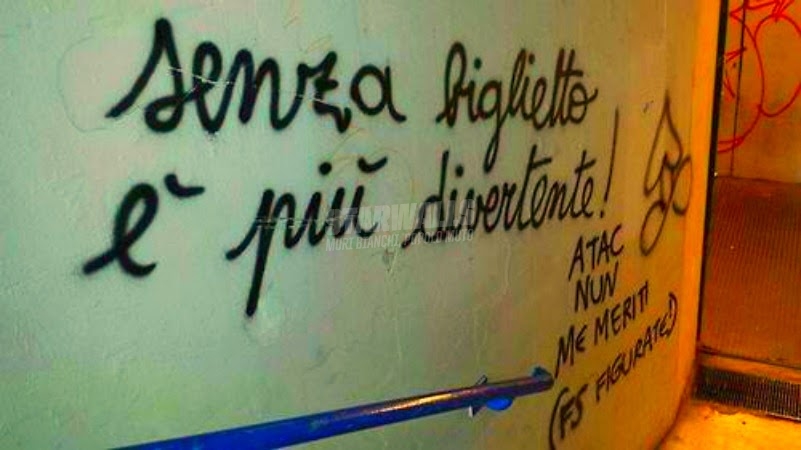 senza biglietto
è più divertente!
ATAC
NUN
ME MERITI
(FS FIGURATE!)
STARWALLS
MURI BIANCHI, POPOLO MUTO